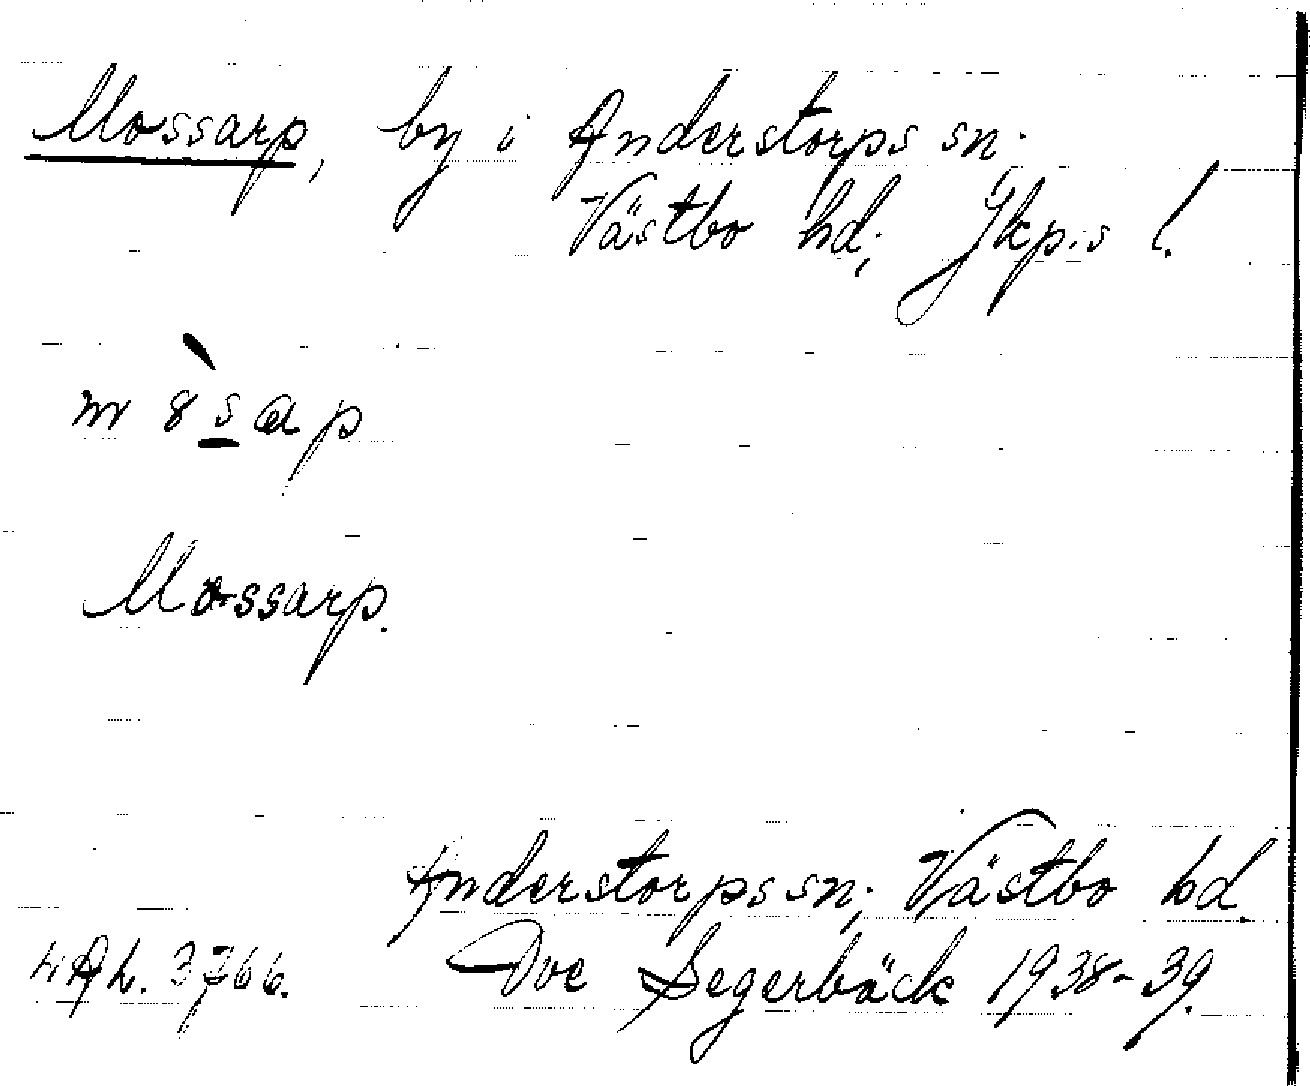 Mossarp, by i Anderstorps sn;
Västbo hd; Jkp:s l.
m 8̀s̲ap
Mossarp.
Anderstorps sn; Västbo hd.
3766. Ove Segerbäck 1938-39.